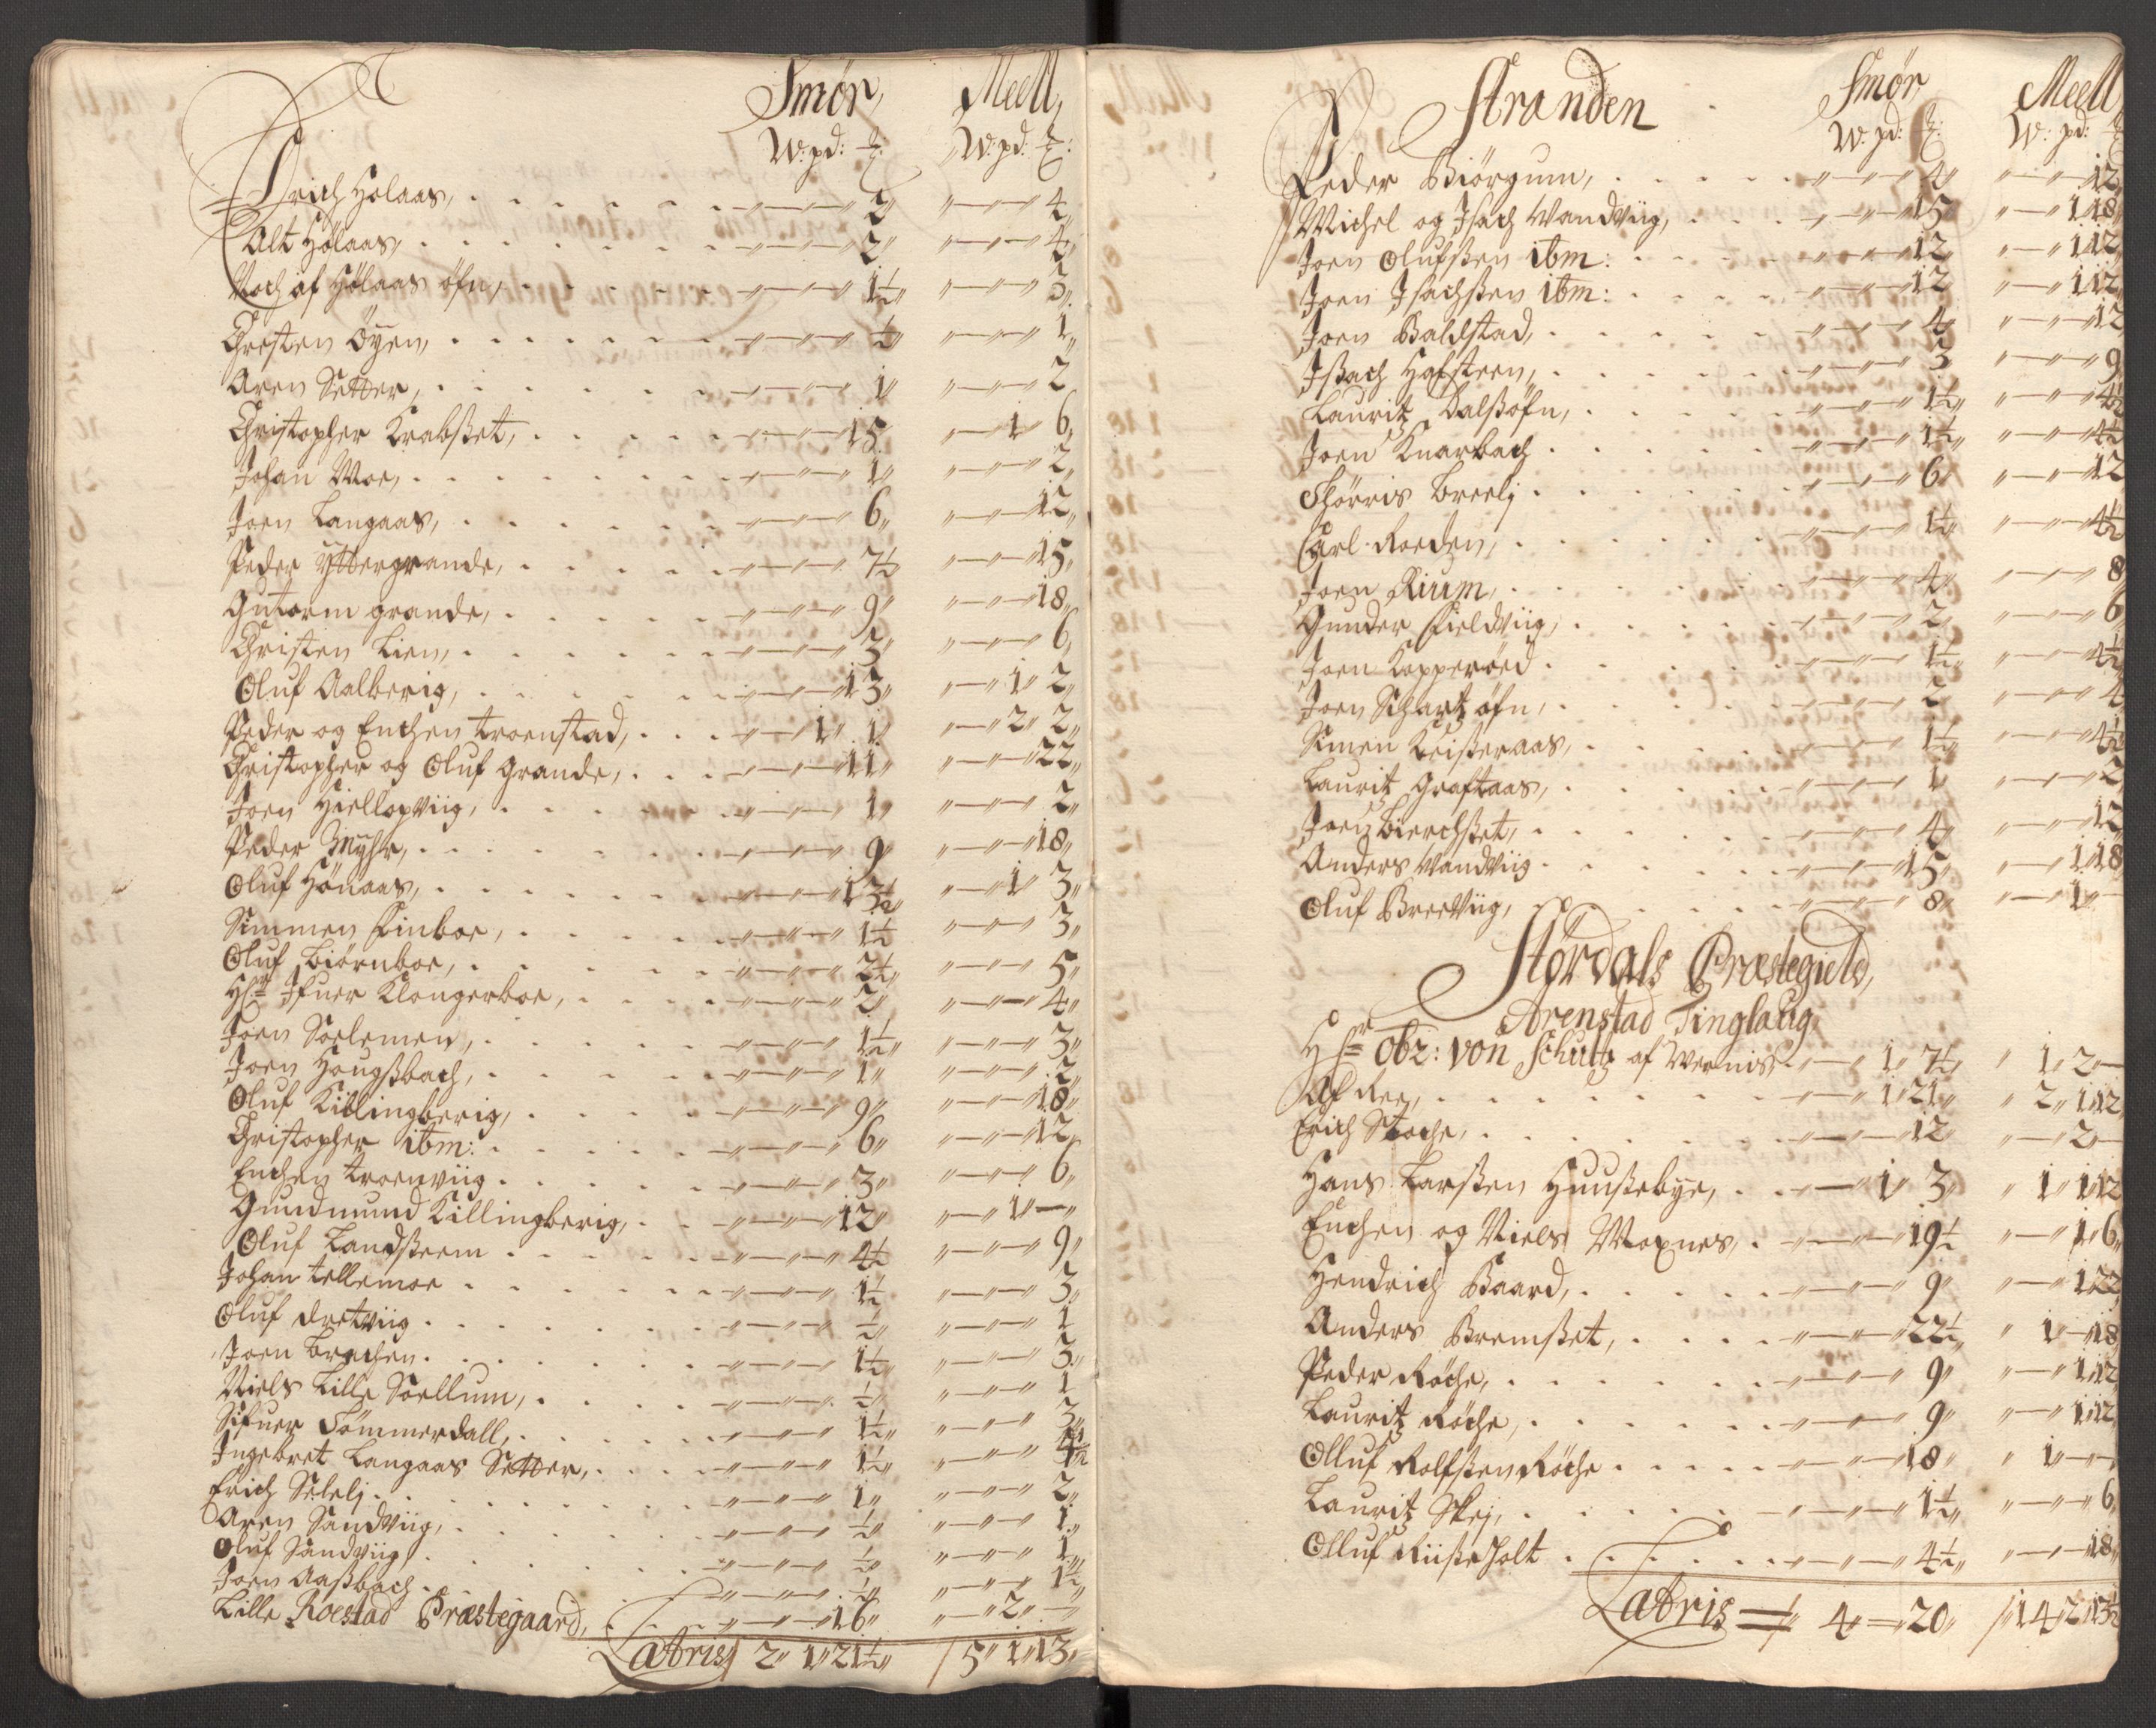 Smör, Meell,
W: pd: ℔: W: pd: ℔:
Erich Holaas, 2 4
Alt Holaas, 2 4
Noch af Hölaas öfn, 1½ 3
Chresten Öyen, ½ 1
Aren Setter, 1 2
Christopher Krabßet, 15 1 6
Johan Moe, 1 2
Joen Langaas, 6 12
Peder Yttergrande, 7½ 15
Gutorm grande, 9 18
Christen Lien, 3 6
Oluf Aalberig, 13 1 2
Peder og Enchen troenstad, 1 1 2 2
Christopher og Oluf Grande, 11 22
Joen Hiellopviig, 1 2
Peder Myhr, 9 18
Oluf Hönaas, 13½ 1 3
Simmen Finboe, 1½ 3
Oluf Biörnboe, 2½ 5
Hr Ifuer Klongerboe, 2 4
Joen Soelemen, 1½ 3
Joen Hougßbach, 1 2
Oluf Killingberig, 9 18
Christopher ibm: 6 12
Enchen troenviig 3 6
Gundmund Killingberig, 12 1 —
Oluf Landstrem 4½ 9
Johan tellemoe 1½ 3
Oluf dretviig ½ 1
Joen Brechen 1½ 3
Niels Lille Soellum, ½ 1
Sifuer Sömmerdall, 1½ 3
Ingebret Langaas Setter, 1½ 4½
Erich Selelj 1 2
Aren Sandviig, ½ 1
Oluf Sandviig, ½ 1
Joen Aaßbach ½ 1½
Lille Roestad Præstegaard, 16 2 —
Latris 2 1 21½ 5 1 13
Stranden Smör Meell
W: pd: ℔: W: pd: ℔
Peder Biörgum, 4 12
Michel og Isach Vandviig, 15 1 18
Joen Olufßen ibm: 12 1 12
Joen Isachßen ibm: 12 1 12
Joen Baldstad, 4 12
Ißach Hofsteen, 3 9
Lauritz Dalßöfn, 1½ 4½
Joen Knarbach 1½ 4½
Siörris breelj 6 12
Carl Roeden, 1½ 4½
Joen Rium, 4 8
Gunder Fieldviig, 2 6
Joen Kopperöed 1½ 4½
Joen Schartz öfn, 2 4
Simen Keißeraas, 1½ 4½
Lauritz Graftaas, 1 2
Joen Bierchßet, 4 12
Anders Vandviig 15 1 18
Oluf Breeviig, 8 1 —
Stördals Præstegield,
Arenstad Tinglaug
Hr Obr: von Schultz af Wernis 1 7½ 1 2 —
Af Ree, 1 21 2 1 12
Erich Stoche, 12 2 —
Hans Larßen Huußebye, 1 3 1 1 12
Enchen og Niels Moxnes, 19½ 1 6
Hendrich Baard, 9 1 22
Anders Bremßet, 22½ 1 — 18
Peder Röche, 9 1 12
Lauritz Röche, 9 1 12
Olluf Rolfßen Röche 18 1 — —
Lauritz Skej, 1½ 6
Olluf Riißeholt 4½ 18
Latris 4 — 20 14 2 13½